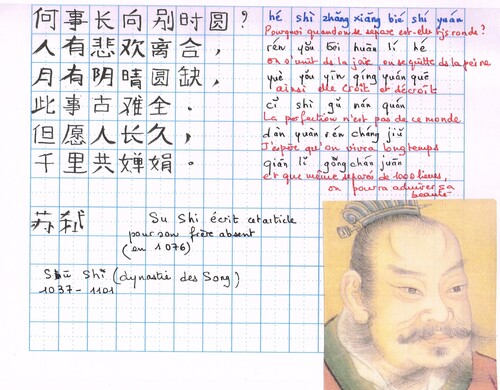 何事长向别时圆?
hé shì zhǎng xiàng bié shí yuán
Pourquoi quand on se sépare est-elle tjs ronde?
人有悲欢离合,
rén yǒu bēi huān lí hé
on s'unit de la joie, on se quitte de la peine
月有阴晴圆缺,
yuè yǒu yīn qíng yuán quē
ainsi elle croît et décroît
此事古难全.
cǐ shì gǔ nán quán
La perfection n'est pas de ce monde
但愿人长久,
dàn yuàn rén cháng jiǔ
J'espère qu'on vivra longtemps
千里共婵娟.
qiān lǐ gòng chán juān
et que même séparés de 1000 lieues,
on pourra admirer sa
beauté
苏轼
Su Shi écrit cet article
pour son frère absent
(en 1076)
Shi (dynastie des Song)
1037-1101